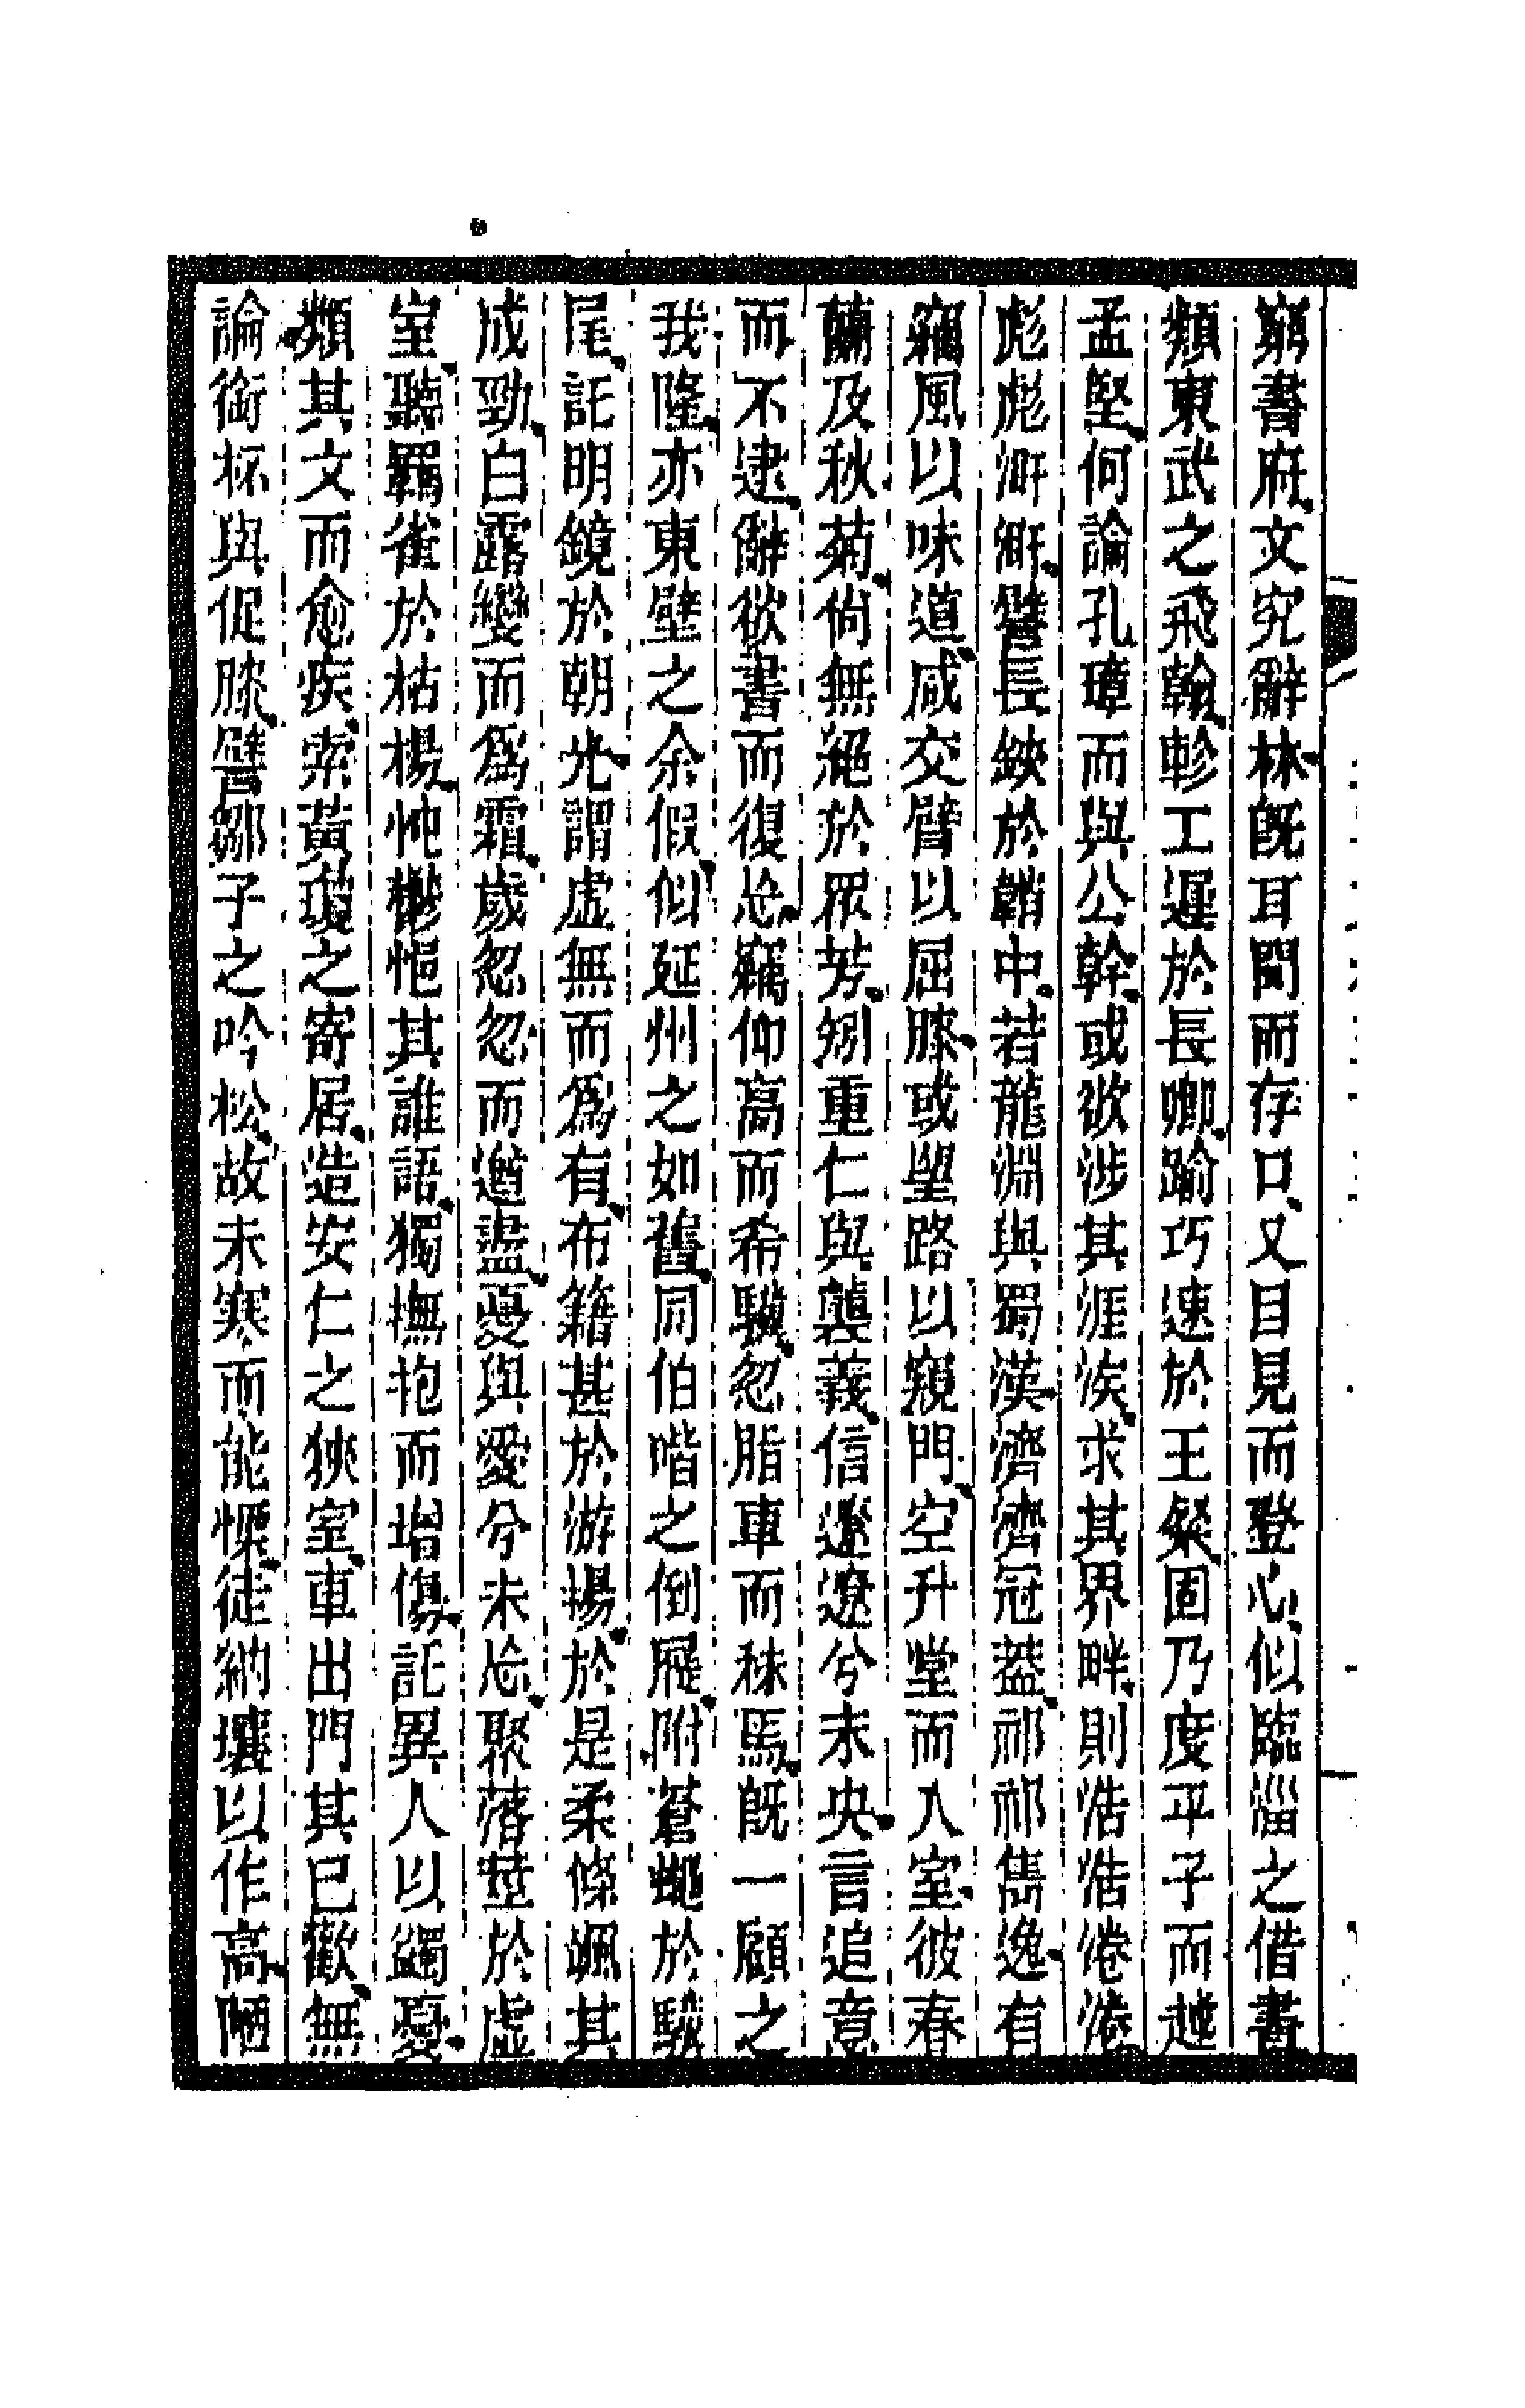 窮書府文究辭林既耳聞而存口又目見而登心似臨淄之借書
類東武之飛翰軫工遲於長卿踰巧速於王粲固乃度平子而越
孟堅何論孔璋而與公幹或欲涉其涯涘求其界畔則浩浩淃淃
彪彪㳽㳽譬長鋏於鞘中若龍淵與蜀漢濟濟冠蓋祁祁雋逸有
竊風以味道咸交臂以屈膝或望路以窺門空升堂而入室彼春
蘭及秋菊尙無絕於眾芳矧重仁與襲義信遼遼兮未央言追意
而不逮辭欲書而復忩竊仰高而希驥忽脂車而秣馬既一顧之
我隆亦東壁之余假似延州之如舊同伯喈之倒屣附蒼蠅於驥
尾託明鏡於朝光謂虛無而爲有布籍甚於游揚於是柔條颯其
成勁白露變而爲霜歲忽忽而遒盡憂與愛兮未忘聚落莖於虛
室聽羈雀於枯楊忳鬱悒其誰語獨撫抱而增傷託異人以蠲憂
類其文而愈疾索黃瓊之寄居造安仁之狹室車出門其已歡無
論銜杯與促膝譬鄒子之吟松故未寒而能慄徒納壤以作高陋